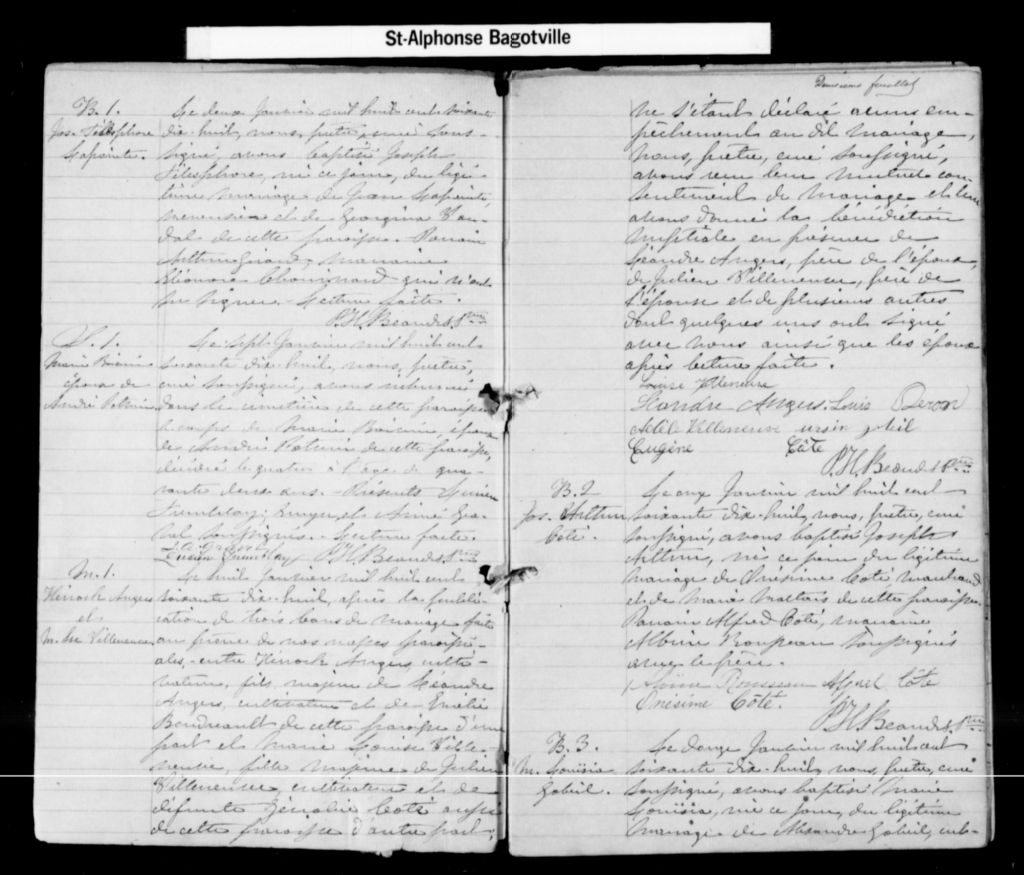 St-Alphonse Bagotville
B. 1.
Jos. Télesphore
Lapointe.
Le deux Janvier mil huit cent soixante
dix-huit, nous, prêtre, curé sous-
signé, avons baptisé Joseph
Télesphore, né ce jour, du légi-
time mariage de Jean Lapointe,
menuisier et de Georgina
de cette paroisse. Parrain
Arthur Girard, marraine
Eléonore Chouinard qui n'ont
su signer. Lecture faite.
P.H. Beaudet Ptre
S. 1.
Marie
épouse de
André Potvin
Le sept Janvier mil huit cent
soixante dix-huit, nous, prêtre,
curé soussigné, avons inhumé
dans le cimetière de cette paroisse
le corps de Marie épouse
de André Potvin de cette paroisse,
décédée le quatre à l'âge de qua-
rante deux ans. Présents Lucien
Tremblay, et Aimé Gra-
vel soussignés. Lecture faite.
Lucien Tremblay P.H. Beaudet Ptre
M. 1.
Hénock Angers
et
M. Ls Villeneuve
Le huit Janvier mil huit cent
soixante dix-huit, après la publi-
cation de trois bans de mariage faite
au prône de nos messes paroissi-
ales, entre Hénock Angers culti-
vateur, fils majeur de Léandre
Angers, cultivateur et de Emélie
Boudreault de cette paroisse d'une
part et Marie Louise Ville-
neuve, fille majeure de Julien
Villeneuve, cultivateur et de
défunte Zénaïde Coté aussi
de cette paroisse d'autre part;
Deuxieme feuillet
ne s'étant déclaré aucun em-
pêchement au dit mariage,
nous, prêtre, curé soussigné,
avons reçu leur mutuel con-
sentement de mariage et leur
avons donné la bénédiction
nuptiale en présence de
Léandre Angers, père de l'époux,
de Julien Villeneuve, père de
l'épouse et de plusieurs autres
dont quelques uns ont signé
avec nous ainsi que les époux
après lecture faite.
Louise Villeneuve
Léandre Angers. Louis
Villeneuve
Eugène Côté
P.H. Beaudet Ptre
B. 2
Jos. Arthur
Coté.
Le onze Janvier mil huit cent
soixante dix-huit, nous, prêtre, curé
soussigné, avons baptisé Joseph
Arthur, né ce jour du légitime
mariage de Onésime Coté marchand
et de Marie Maltais de cette paroisse.
Parrain Alfred Coté, marraine
Albine Rousseau soussignés
avec le père.
Rousseau Alfred Côté
Onésime Côté.
P.H. Beaudet Ptre
B. 3.
M. Louisia
Gobeil.
Le douze Janvier mil huit cent
soixante dix-huit, nous, prêtre, curé
soussigné, avons baptisé Marie
Louisia, née ce jour, du légitime
mariage de Alexandre Gobeil, cul-